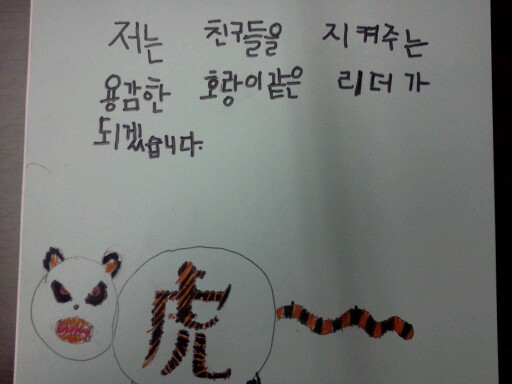 저는 친구들을 지켜주는
용감한 호랑이같은 리더가
되겠습니다.
虎